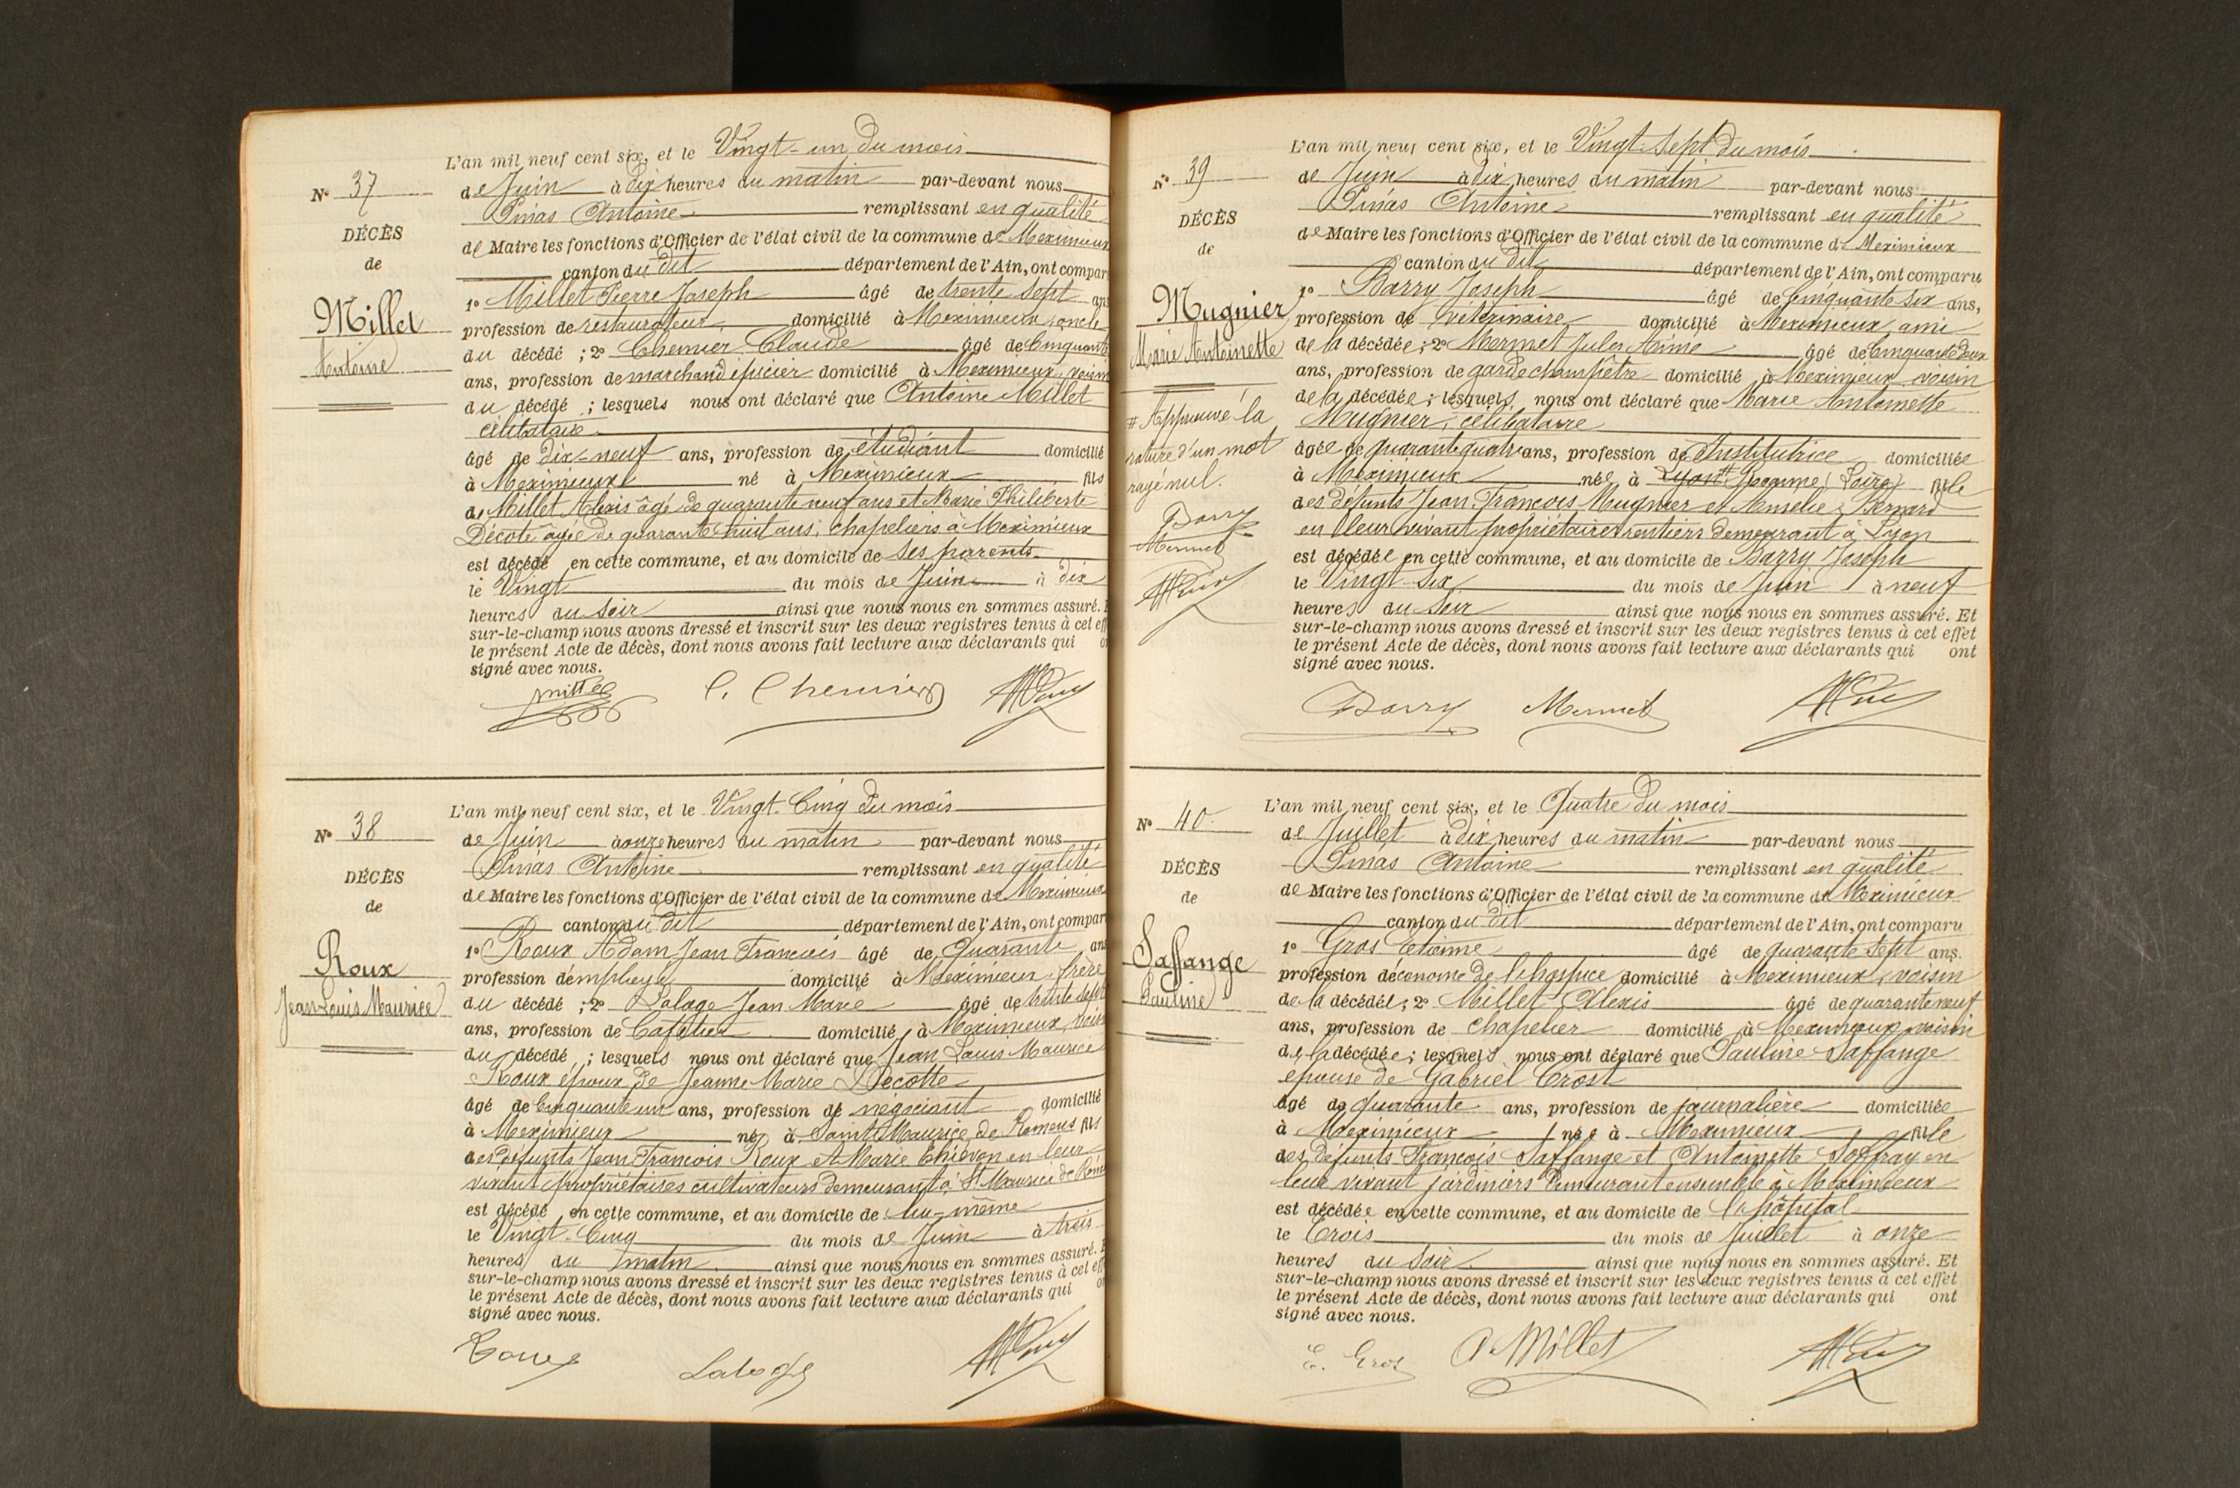 N° 37
DÉCÈS
de
Millet
Antoine
L'an mil neuf cent six, et le Vingt-un du mois
de Juin à dix heures du matin par-devant nous
Pinas Antoine remplissant en qualité
de Maire les fonctions d'Officier de l'état civil de la commune de Meximieux
canton du dit département de l'Ain, ont compar
1° Millet Pierre Joseph âgé de trente sept ans
profession de restaurateur domicilié à Meximieux, oncle
du décédé ; 2° Chenier Claude âgé de Cinquante
ans, profession de marchand épicier domicilié à Meximieux, voisin
du décédé ; lesquels nous ont déclaré que Antoine Millet
célibataire
âgé de dix-neuf ans, profession de étudiant domicilié
à Meximieux né à Meximieux fils
de Millet Alexis âgé de quarante neuf ans et Marie Philiberte
Décote âgée de quarante huit ans, chapeliers à Meximieux
est décédé en cette commune, et au domicile de ses parents
le Vingt du mois de Juin à dix
heures du soir ainsi que nous nous en sommes assuré. E
sur-le-champ nous avons dressé et inscrit sur les deux registres tenus à cet eff
le présent Acte de décès, dont nous avons fait lecture aux déclarants qui on
signé avec nous.
Millet C. Chenier
N° 38
DÉCÈS
de
Roux
Jean Louis Maurice
L'an mil neuf cent six, et le Vingt-Cinq du mois
de Juin à onze heures du matin par-devant nous
Pinas Antoine remplissant en qualité
de Maire les fonctions d'Officier de l'état civil de la commune de Meximieux
canton du dit département de l'Ain, ont compar
1° Roux Adam Jean Francois âgé de Quarante ans
profession d'employé domicilié à Meximieux, frère
du décédé ; 2° Lalage Jean Marie âgé de trente sept
ans, profession de Cafetier domicilié à Meximieux, voisin
du décédé ; lesquels nous ont déclaré que Jean Louis Maurice
Roux époux de Jeanne Marie Decotte
âgé de Cinquante un ans, profession de négociant domicilié
à Meximieux né à Saint Maurice de Remens fils
des défunts Jean Francois Roux et Marie Chiévon en leur
vivant propriétaires cultivateurs demeurant à St Maurice de Rémens
est décédé en cette commune, et au domicile de lui-même
le Vingt-Cinq du mois de Juin à trois
heures du matin ainsi que nous nous en sommes assuré. E
sur-le-champ nous avons dressé et inscrit sur les deux registres tenus à cet eff
le présent Acte de décès, dont nous avons fait lecture aux déclarants qui on
signé avec nous.
Roux Laloge
N° 39
DÉCÈS
de
Mugnier
Marie Antoinette
# Approuvé la
rature d'un mot
rayé nul.
Barry
Mermet
L'an mil neuf cent six, et le Vingt-Sept du mois
de Juin à dix heures du matin par-devant nous
Pinas Antoine remplissant en qualité
de Maire les fonctions d'Officier de l'état civil de la commune de Meximieux
canton du dit département de l'Ain, ont comparu
1° Barry Joseph âgé de Cinquante six ans,
profession de vétérinaire domicilié à Meximieux, ami
de la décédée ; 2° Mermet Jules Aimé âgé de Cinquante deux
ans, profession de garde champêtre domicilié à Meximieux, voisin
de la décédée ; lesquels nous ont déclaré que Marie Antoinette
Mugnier, célibataire
âgée de quarante quatre ans, profession de Institutrice domiciliée
à Meximieux née à Lyon # Roanne (Loire) fille
des défunts Jean Francois Mugnier et Amélie Bernard
en leur vivant propriétaires rentiers demeurant à Lyon
est décédée en cette commune, et au domicile de Barry Joseph
le Vingt-six du mois de Juin à neuf
heures du soir ainsi que nous nous en sommes assuré. Et
sur-le-champ nous avons dressé et inscrit sur les deux registres tenus à cet effet
le présent Acte de décès, dont nous avons fait lecture aux déclarants qui ont
signé avec nous.
Barry Mermet
N° 40
DÉCÈS
de
Saffange
Pauline
L'an mil neuf cent six, et le Quatre du mois
de Juillet à dix heures du matin par-devant nous
Pinas Antoine remplissant en qualité
de Maire les fonctions d'Officier de l'état civil de la commune de Meximieux
canton du dit département de l'Ain, ont comparu
1° Gros Etienne âgé de quarante sept ans.
profession d'économe de l'hospice domicilié à Meximieux, voisin
de la décédée ; 2° Millet Alexis âgé de quarante neuf
ans, profession de chapelier domicilié à Meximieux, voisin
de la décédée ; lesquels nous ont déclaré que Pauline Saffange
épouse de Gabriel Crost
âgé de quarante ans, profession de journalière domiciliée
à Meximieux née à Meximieux fille
des défunts François Saffange et Antoinette Joffray en
leur vivant jardiniers demeurant ensemble à Meximieux
est décédée en cette commune, et au domicile de l'hôpital
le Trois du mois de Juillet à onze
heures du soir ainsi que nous nous en sommes assuré. Et
sur-le-champ nous avons dressé et inscrit sur les deux registres tenus à cet effet
le présent Acte de décès, dont nous avons fait lecture aux déclarants qui ont
signé avec nous.
E. Gros A. Millet